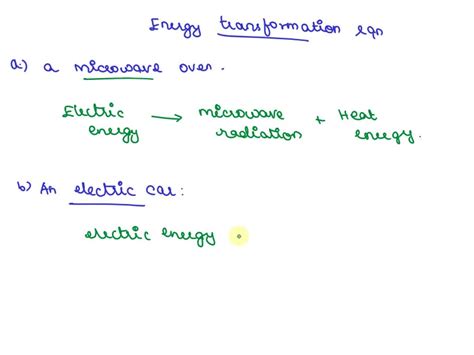 Energy transformation eqn
a) a microwave oven.
Electric energy → microwave radiation + Heat energy.
b) An electric car:
electric energy